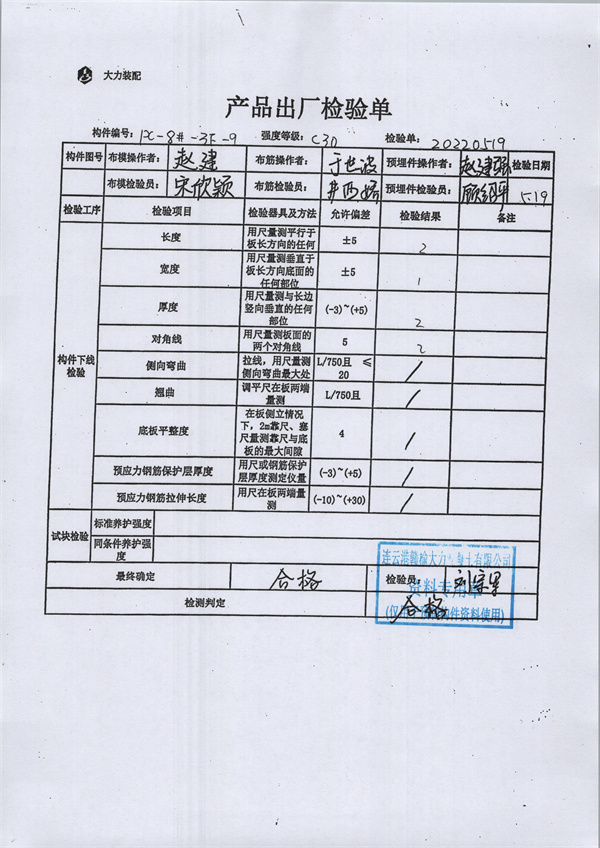 大力装配
产品出厂检验单
构件编号: PC-8#-3F-9 强度等级: C30 检验单: 20220519
构件图号 布模操作者: 赵建 布筋操作者: 于世波 预埋件操作者: 赵建强 检验日期
布模检验员: 宋欣颖 布筋检验员: 预埋件检验员: 5.19
检验工序 检验项目 检验器具及方法 允许偏差 检验结果 备注
构件下线检验
长度 用尺量测平行于板长方向的任何 ±5 2
宽度 用尺量测垂直于板长方向底面的任何部位 ±5 1
厚度 用尺量测与长边竖向垂直的任何部位 (-3)~(+5) 2
对角线 用尺量测板面的两个对角线 5 2
侧向弯曲 拉线，用尺量测侧向弯曲最大处 L/750且 ≤20 /
翘曲 调平尺在板两端量测 L/750且 /
底板平整度 在板侧立情况下，2m靠尺、塞尺量测靠尺与底板的最大间隙 4 /
预应力钢筋保护层厚度 用尺或钢筋保护层厚度测定仪量 (-3)~(+5) /
预应力钢筋拉伸长度 用尺在板两端量测 (-10)~(+30) /
试块检验 标准养护强度
同条件养护强度
连云港赣榆大力 有限公司
最终确定 合格 检验员:
资料专用章
检测判定 合格
(仅 构件资料使用)